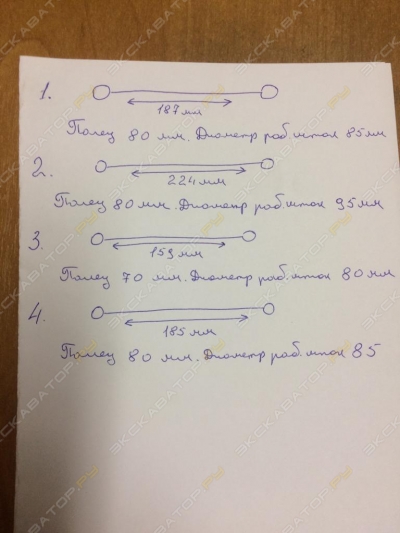 1.
187 мм
Палец 80 мм. Диаметр раб.шток 85мм
2.
224мм
Палец 80мм. Диаметр раб.шток 95мм
3.
159мм
Палец 70 мм. Диаметр раб.шток 80мм
4.
185 мм
Палец 80 мм. Диаметр раб.шток 85
ЭКСКАВАТОР.РУ